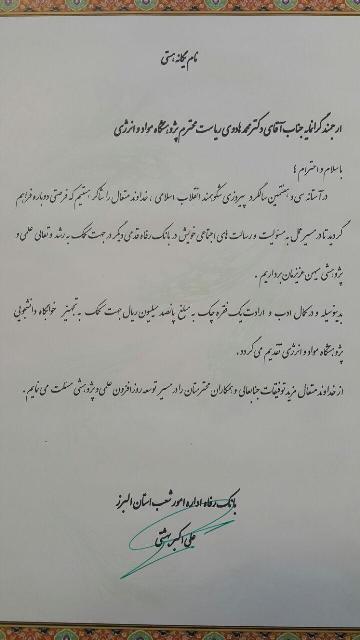 بنام یگانه هستی
ارجمند گرانمایه جناب آقای دکتر محمد هادوی ریاست محترم پژوهشگاه مواد و انرژی
با سلام و احترام؛
در آستانه سی و هفتمین سالگرد پیروزی شکوهمند انقلاب اسلامی، خداوند متعال را شاکر هستیم که فرصتی دوباره فراهم
گردید تا در مسیر عمل به مسئولیت و رسالت های اجتماعی خویش در بانک رفاه قدمی دیگر در جهت کمک به رشد و تعالی علمی و
پژوهشی میهن عزیزمان برداریم.
بدینوسیله و در کمال ادب و ارادت یک فقره چک به مبلغ پانصد میلیون ریال جهت کمک به تجهیز خوابگاه دانشجویی
پژوهشگاه مواد و انرژی تقدیم می گردد.
از خداوند متعال مزید توفیقات جنابعالی و همکاران محترمتان را در مسیر توسعه روزافزون علمی و پژوهشی مسئلت می نمایم.
بانک رفاه اداره امور شعب استان البرز
علی اکبر بهشتی